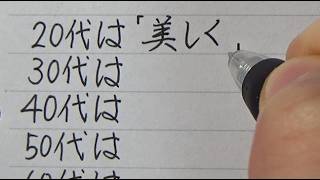 20代は「美しく
30代は
40代は
50代は